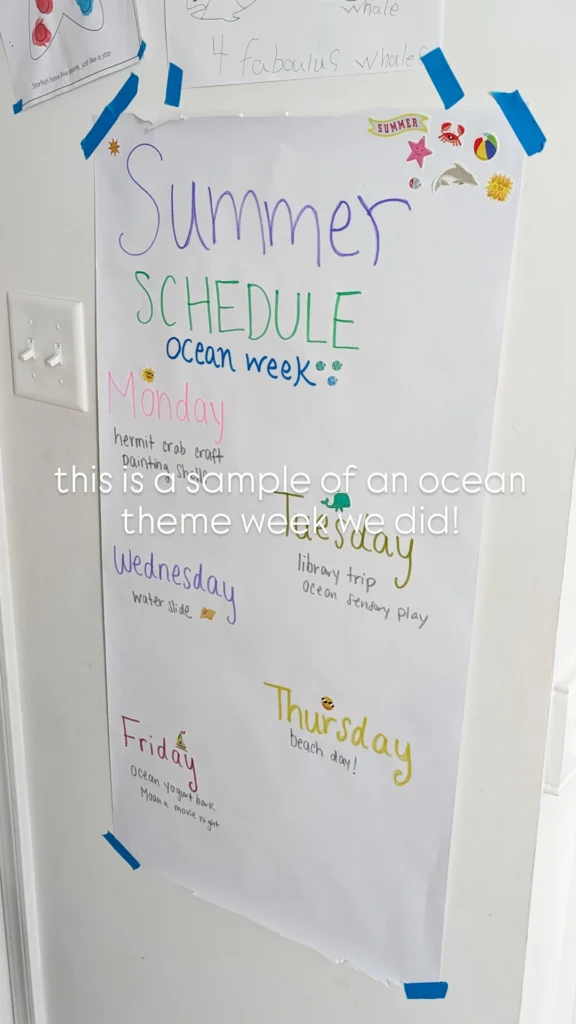 whale
4 faboulus whales
Starfish have five points, just like a star
SUMMER
Summer
SCHEDULE
ocean week
Monday
hermit crab craft
painting shells
this is a sample of an ocean
theme week we did!
Tuesday
library trip
ocean sensory play
Wednesday
water slide
Thursday
beach day!
Friday
Ocean yogurt bark
Moana movie night